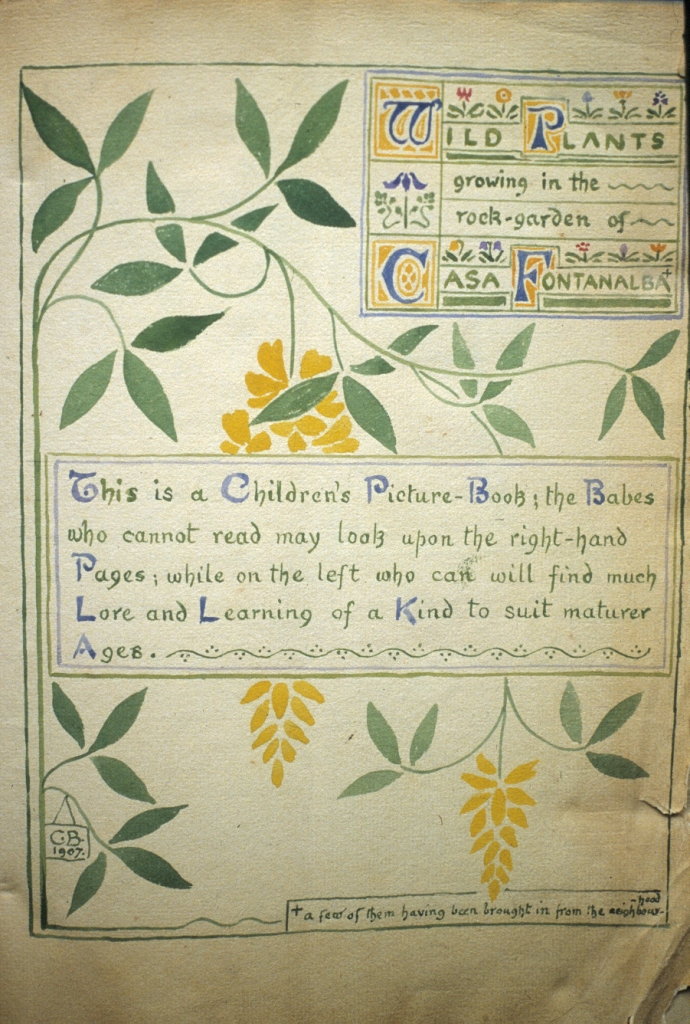 WILD PLANTS
growing in the
rock-garden of
CASA FONTANALBA+
This is a Children's Picture-Book; the Babes
who cannot read may look upon the right-hand
Pages; while on the left who can will find much
Lore and Learning of a Kind to suit maturer
Ages.
C.B.
1907.
+a few of them having been brought in from the neighbour-
-hood